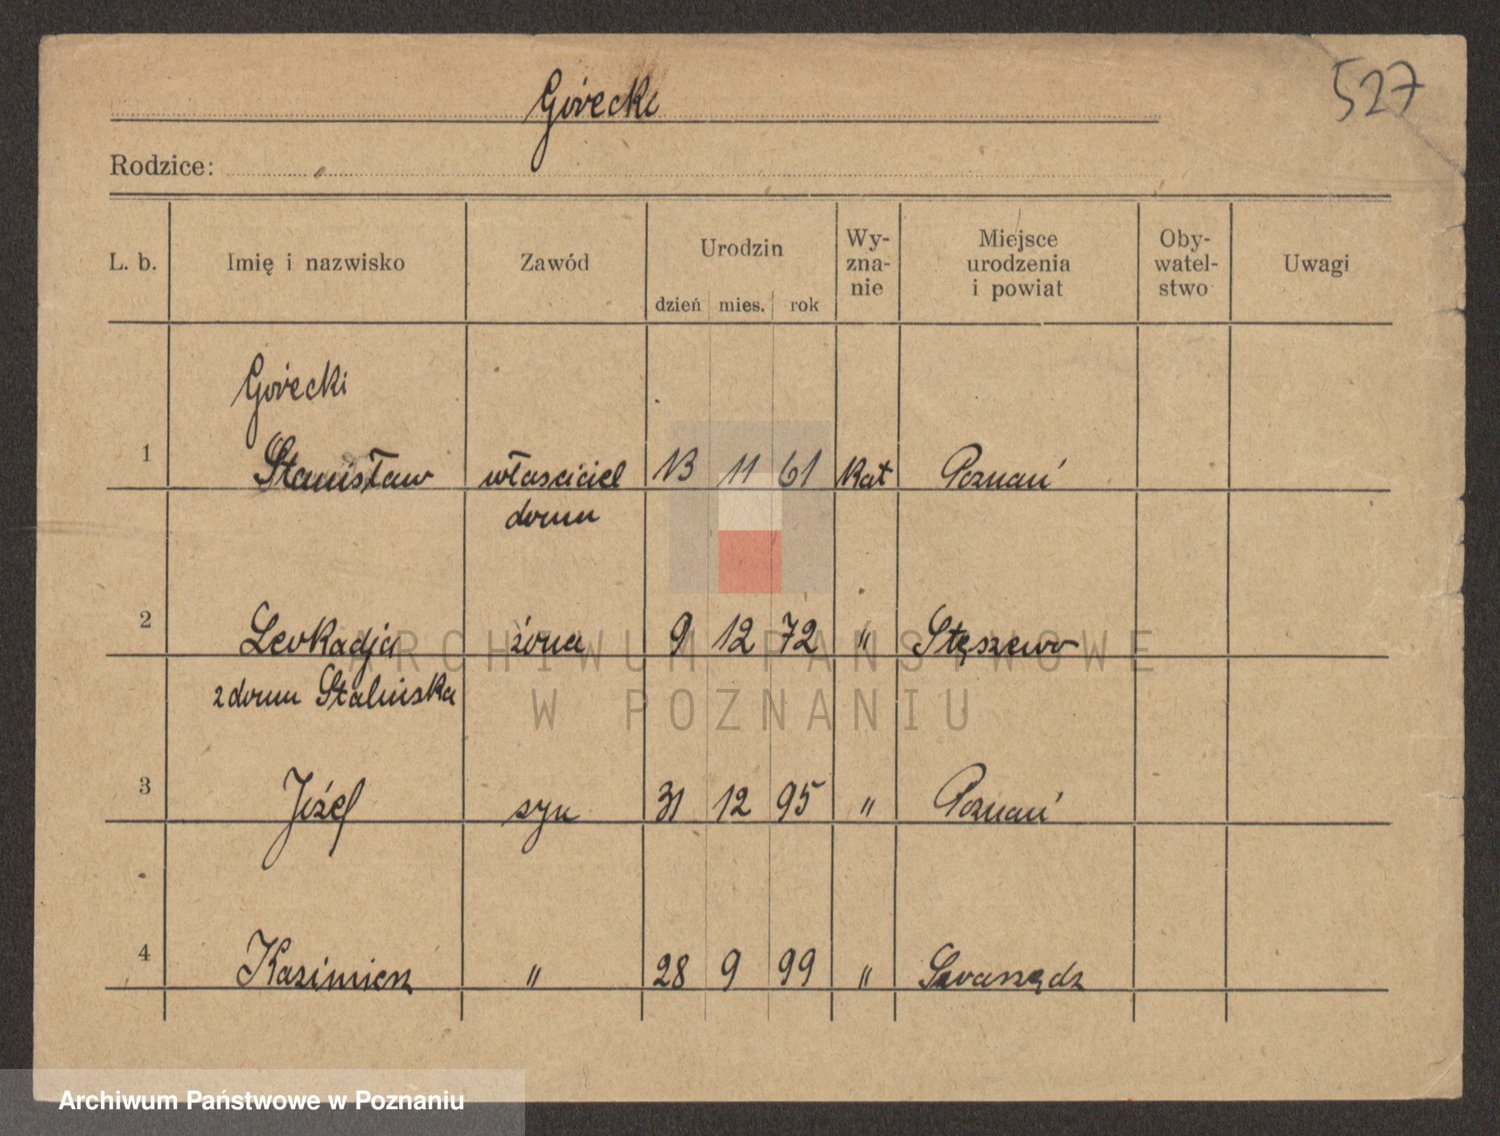 527
Górecki
Rodzice:
L. b. Imię i nazwisko Zawód Urodzin dzień mies. rok Wy-zna-nie Miejsce urodzenia i powiat Oby-watel-stwo Uwagi
Górecki
1 Stanisław właściciel 13 11 61 kat Poznań
domu
2 Leokadja żona 9 12 72 " Stęszewo
z domu Stalińska
3 Józef syn 31 12 95 " Poznań
4 Kazimierz " 28 9 99 " Swarzędz
ARCHIWUM PAŃSTWOWE
W POZNANIU
Archiwum Państwowe w Poznaniu